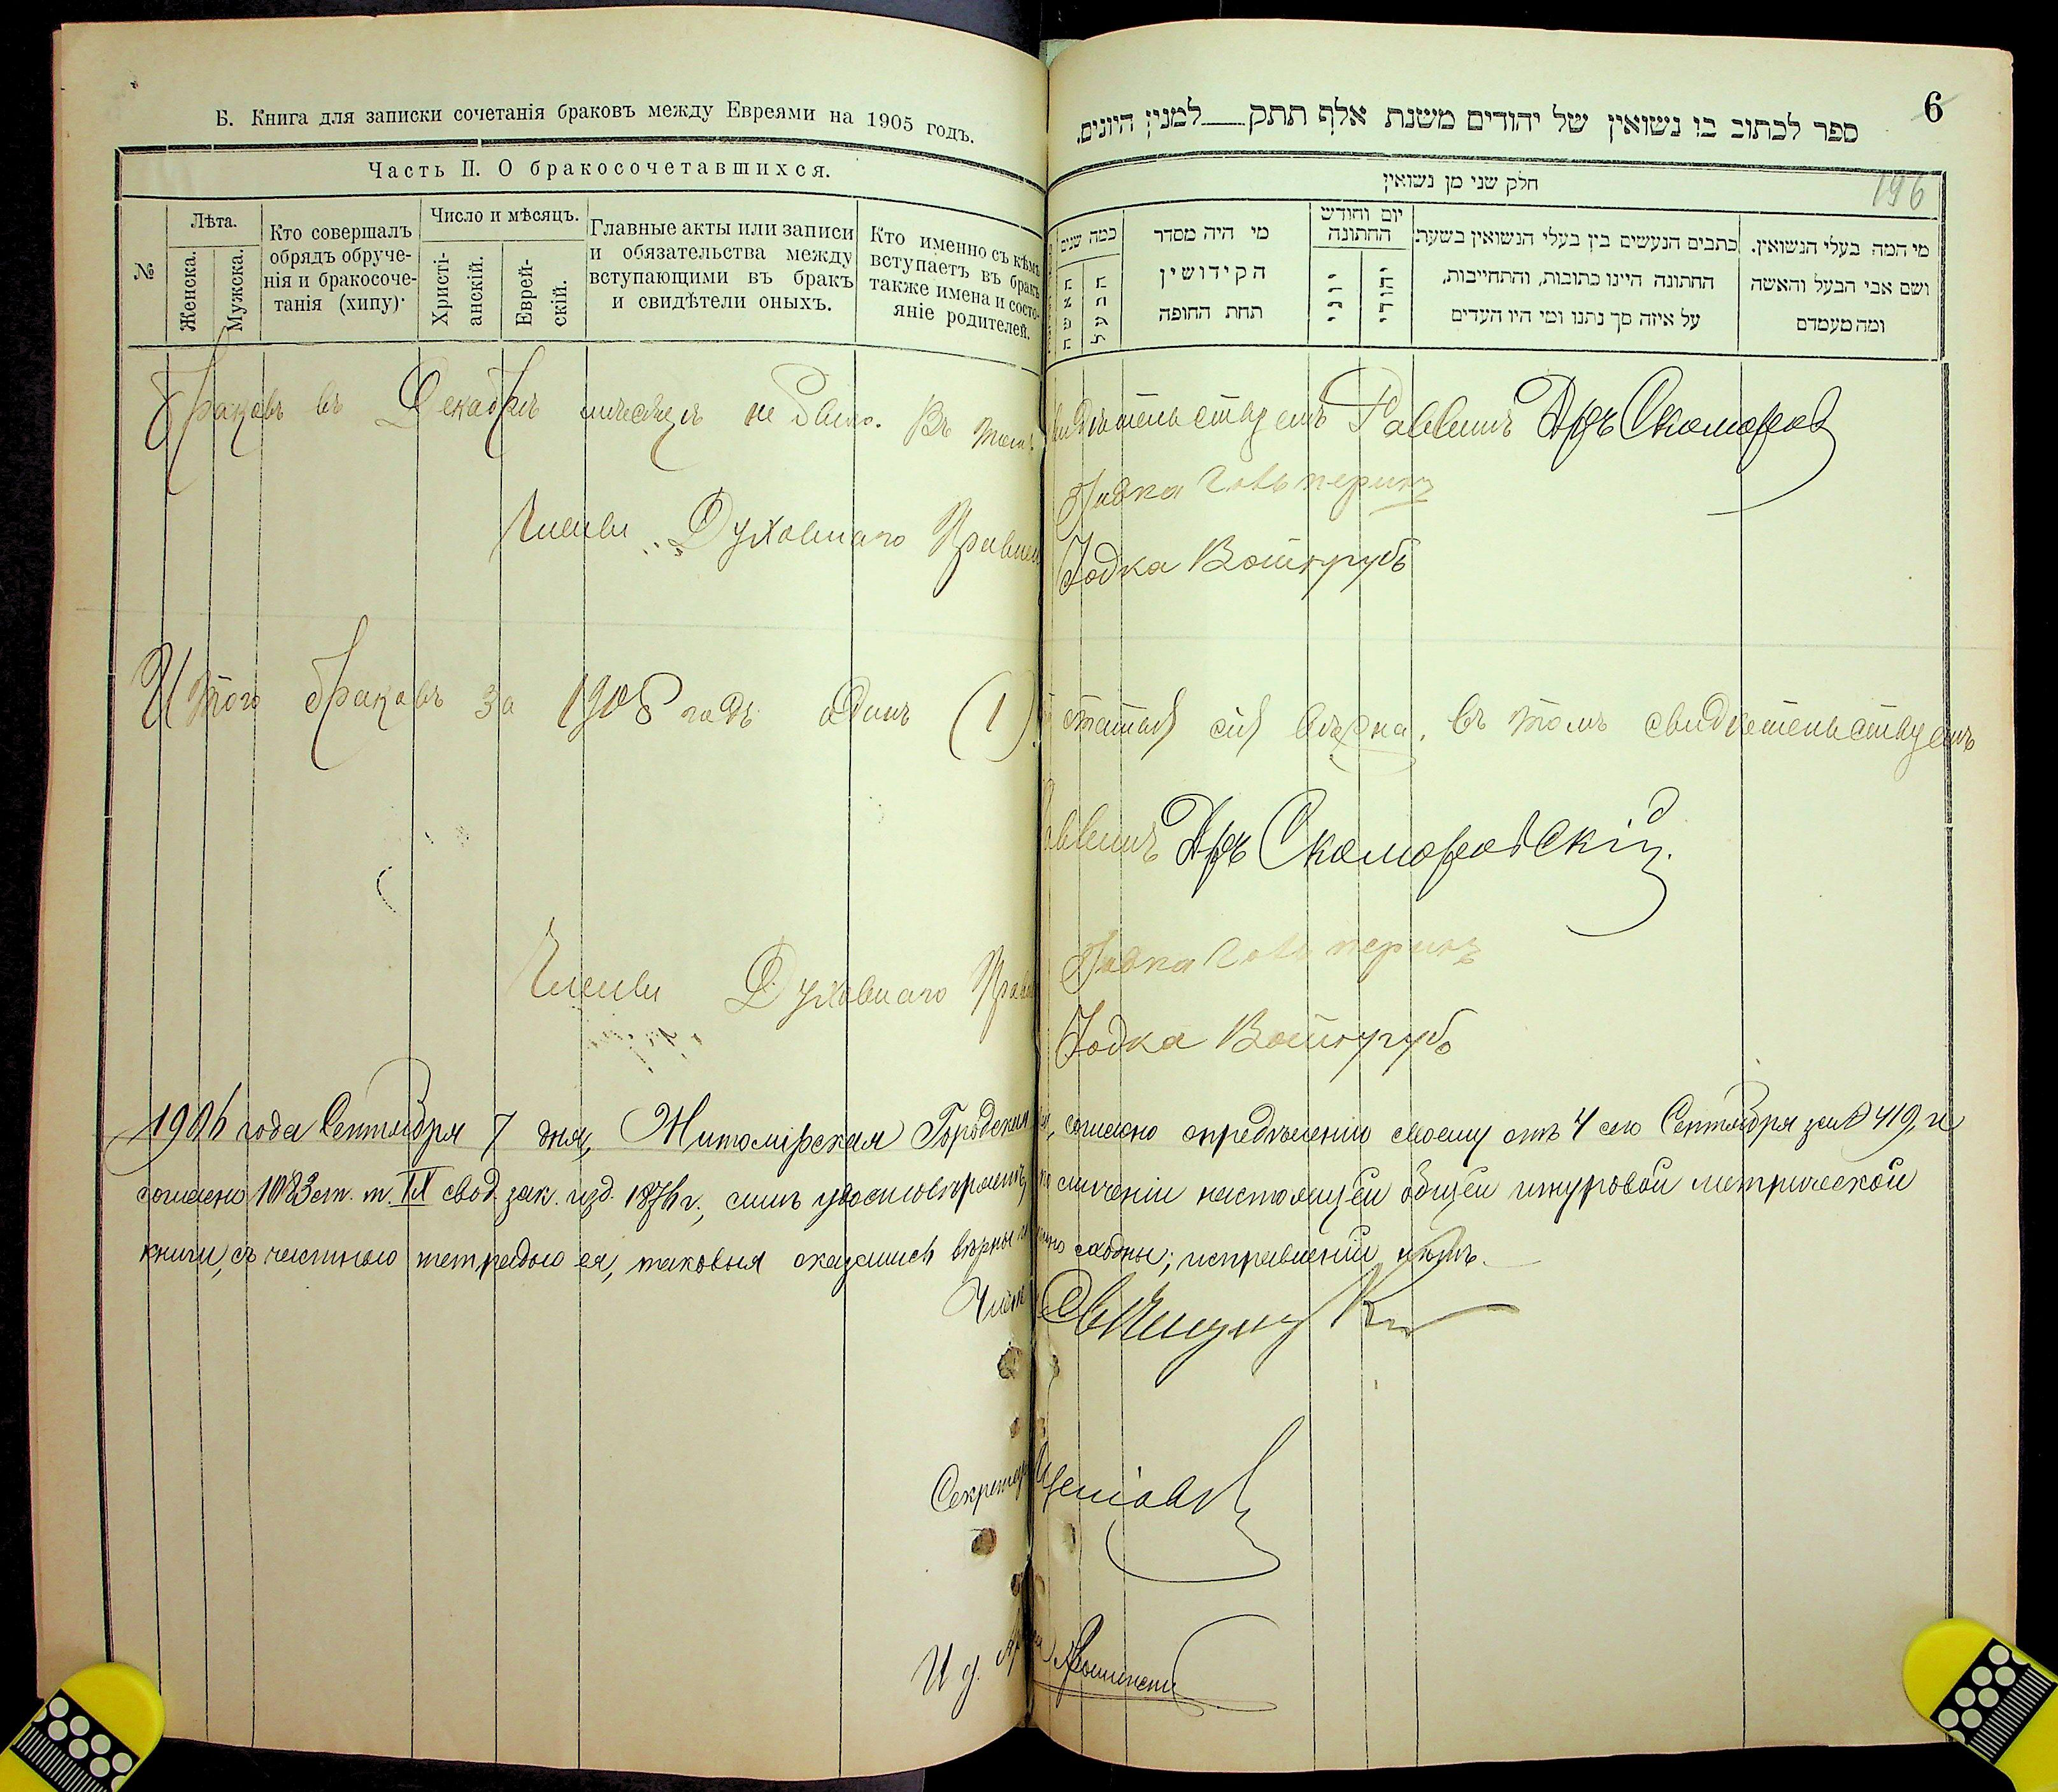 Б. Книга для записки сочетанія браковъ между Евреями на 1905 годъ.
Часть II. О бракосочетавшихся.
№
Лѣта.
Женска.
Мужска.
Кто совершалъ
обрядъ обруче-
нія и бракосоче-
танія (хипу).
Число и мѣсяцъ.
Христі-
анскій.
Еврей-
скій.
Главные акты или записи
и обязательства между
вступающими въ бракъ
и свидѣтели оныхъ.
Кто именно съ кѣмъ
вступаетъ въ бракъ
также имена и состо-
яніе родителей.
6
ספר לכתוב בו נשואין של יהודים משנת אלף תתק___למנין היונים.
חלק שני מן נשואין
196
כמה שנים
האשה
הבעל
מי היה מסדר
הקידושין
תחת החופה
יום וחודש
החתונה
יוני
יהודי
כתבים הנעשים בין בעלי הנשואין בשעת
החתונה היינו כתובות, והתחייבות,
על איזה סך נתנו ומי היו העדים
מי המה בעלי הנשואין.
ושם אבי הבעל והאשה
ומה מעמדם
Браковъ въ Декабрѣ мѣсяцѣ не было. Въ томъ свидѣтельствуемъ Раввинъ Дръ Скоморов
Члены Духовнаго Правлен
Іодка Войнгрубъ
Итого браковъ за 1905 годъ одинъ (1). статья сія вѣрна, въ томъ свидѣтельствуемъ
Раввинъ Дръ Скоморовскій
Члены Духовнаго Прав
Іодка Войнгрубъ
1906 года Сентября 7 дня, Житомірская Городская согласно опредѣленію своему отъ 4 сего Сентября за № 419, и
согласно 1083 ст. т. IX свод. зак. изд. 1876 г., симъ удостовѣряетъ, по сличеніи настоящей общей шнуровой метрической
книги, съ частною тетрадью ея, таковыя оказались вѣрны и сходны; исправленій нѣтъ.
Член
Секретарь
И д.